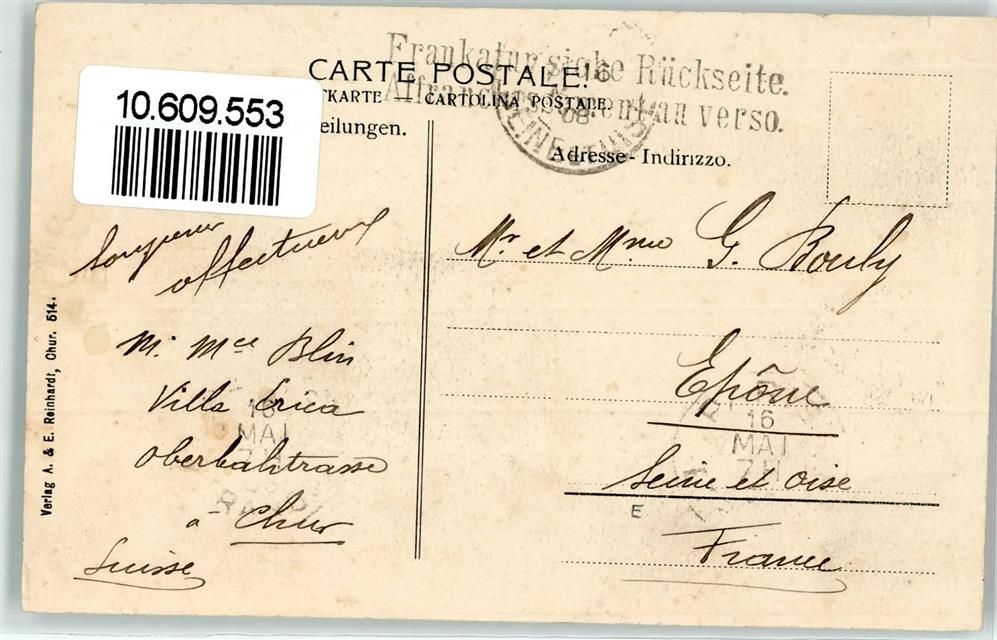 Frankatur siehe Rückseite.
Affranchissement au verso.
CARTE POSTALE.
TKARTE — CARTOLINA POSTALE.
eilungen.
Adresse - Indirizzo.
10.609.553
08
affectueux
M. Mce Blin
Villa Erica
Oberbahtrasse
a Chur
Suisse
Mr et Mme G. Bouly
Epône
Seine et Oise
France
16
MAI
16
MAI
E
Verlag A. & E. Reinhardt, Chur. 514.